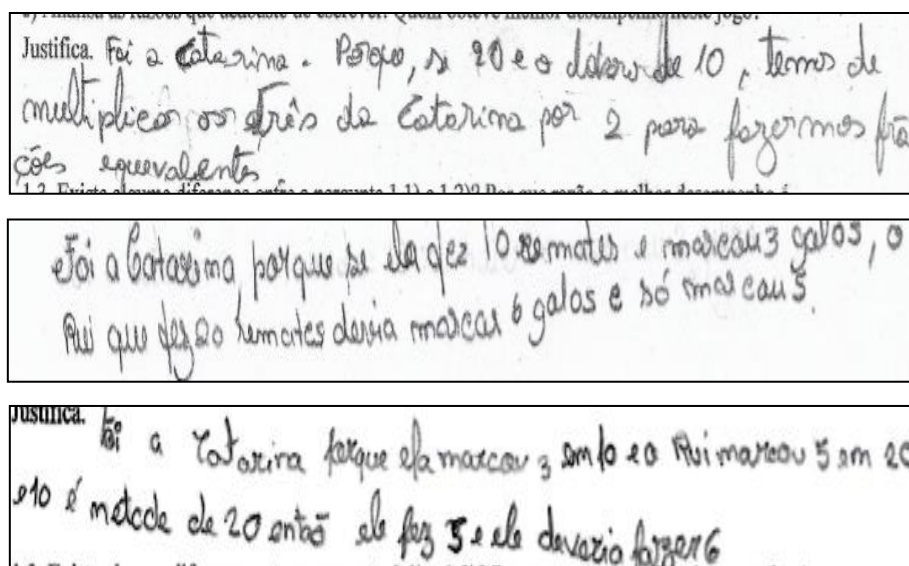 Justifica. Foi a Catarina. Porque, se 20 é o dobro de 10, temos de
multiplicar os três da Catarina por 2 para fazermos fra
ções equevalentes
Foi a Catarina, porque se ela fez 10 remates e marcou 3 galos, o
Rui que fez 20 remates devia marcar 6 galos e só marcou 5.
Justifica. Foi a Catarina porque ela marcou 3 em 10 e o Rui marcou 5 em 20
e 10 é metade de 20 entõ ele fez 5 e ele deveria fazer 6